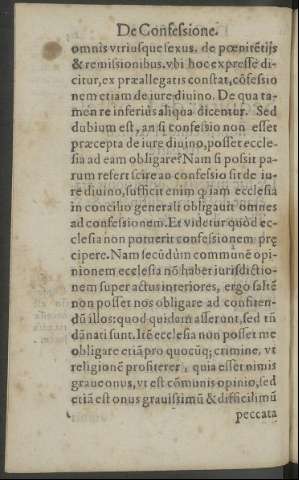 De Confessione.
omnis vtriusque sexus. de pœnitētijs
& remissionibus. vbi hoc expresse di-
citur, ex præallegatis constat, cōfessio
nem etiam de iure diuino. De qua ta-
men re inferius aliqua dicentur. Sed
dubium est, an si confessio non esset
præcepta de iure diuino, posset eccle-
sia ad eam obligare? Nam si possit pa-
rum refert scire an confessio sit de iu-
re diuino, sufficit enim ꝙ iam ecclesia
in concilio generali obligauit omnes
ad confessionem. Et videtur quòd ec-
clesia non poruerit confessionem prę
cipere. Nam secūdum communē opi-
nionem ecclesia nō habet iurisdictio-
nem super actus interiores, ergo saltē
non posset nos obligare ad confiten-
dū illos: quod quidam asserunt, sed tū
dānati sunt. Itē ecclesia non posset me
obligare etiā pro quocūq; crimine, vt
religionē profiterer, quia esset nimis
graue onus, vt est cōmunis opinio, sed
etiā est onus grauissimū & difficilimū
peccata